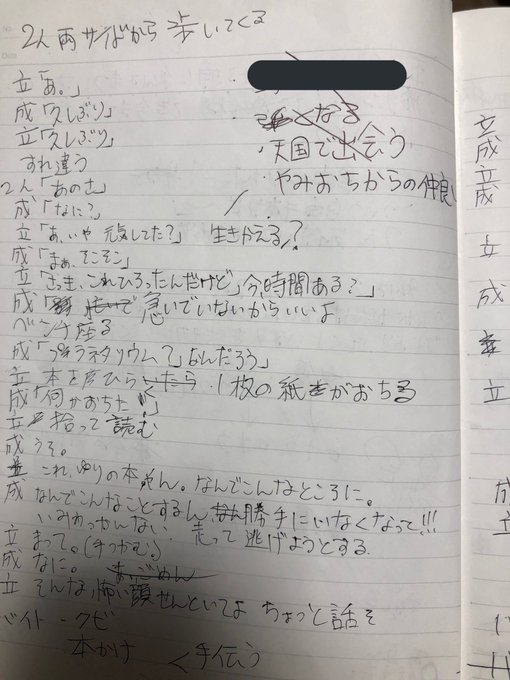 2人両サイドから歩いてくる
立「あ。」
成「久しぶり」
立「久しぶり」
すれ違う
2人「あのさ」
成「なに?」
立「あ、いや 元気してた?」 生きかえる?
成「まぁ、そこそこ」
立「さっき、これひろったんだけど」今、時間ある?」
成「急いでいないからいいよ
ベンチ座る
成「プラネタリウム?なんだろう」
立 本を ひらいたら 1枚の紙がおちる
成「何かおちた」
立 拾って読む
成 うそ。
これ、ゆりの本やん。なんでこんなところに。
成 なんでこんなことするん、勝手にいなくなって!!!
いみわっかんない 走って逃げようとする
立 まって。(手つかむ)
成 なに。 あ、ごめん
立 そんな怖い顔せんといてよ ちょっと話そ
バイト - クビ
本かけ < 手伝う
となる
天国で出会う
やみおちからの仲良し
立
成
立
成
立
成
立
成
立